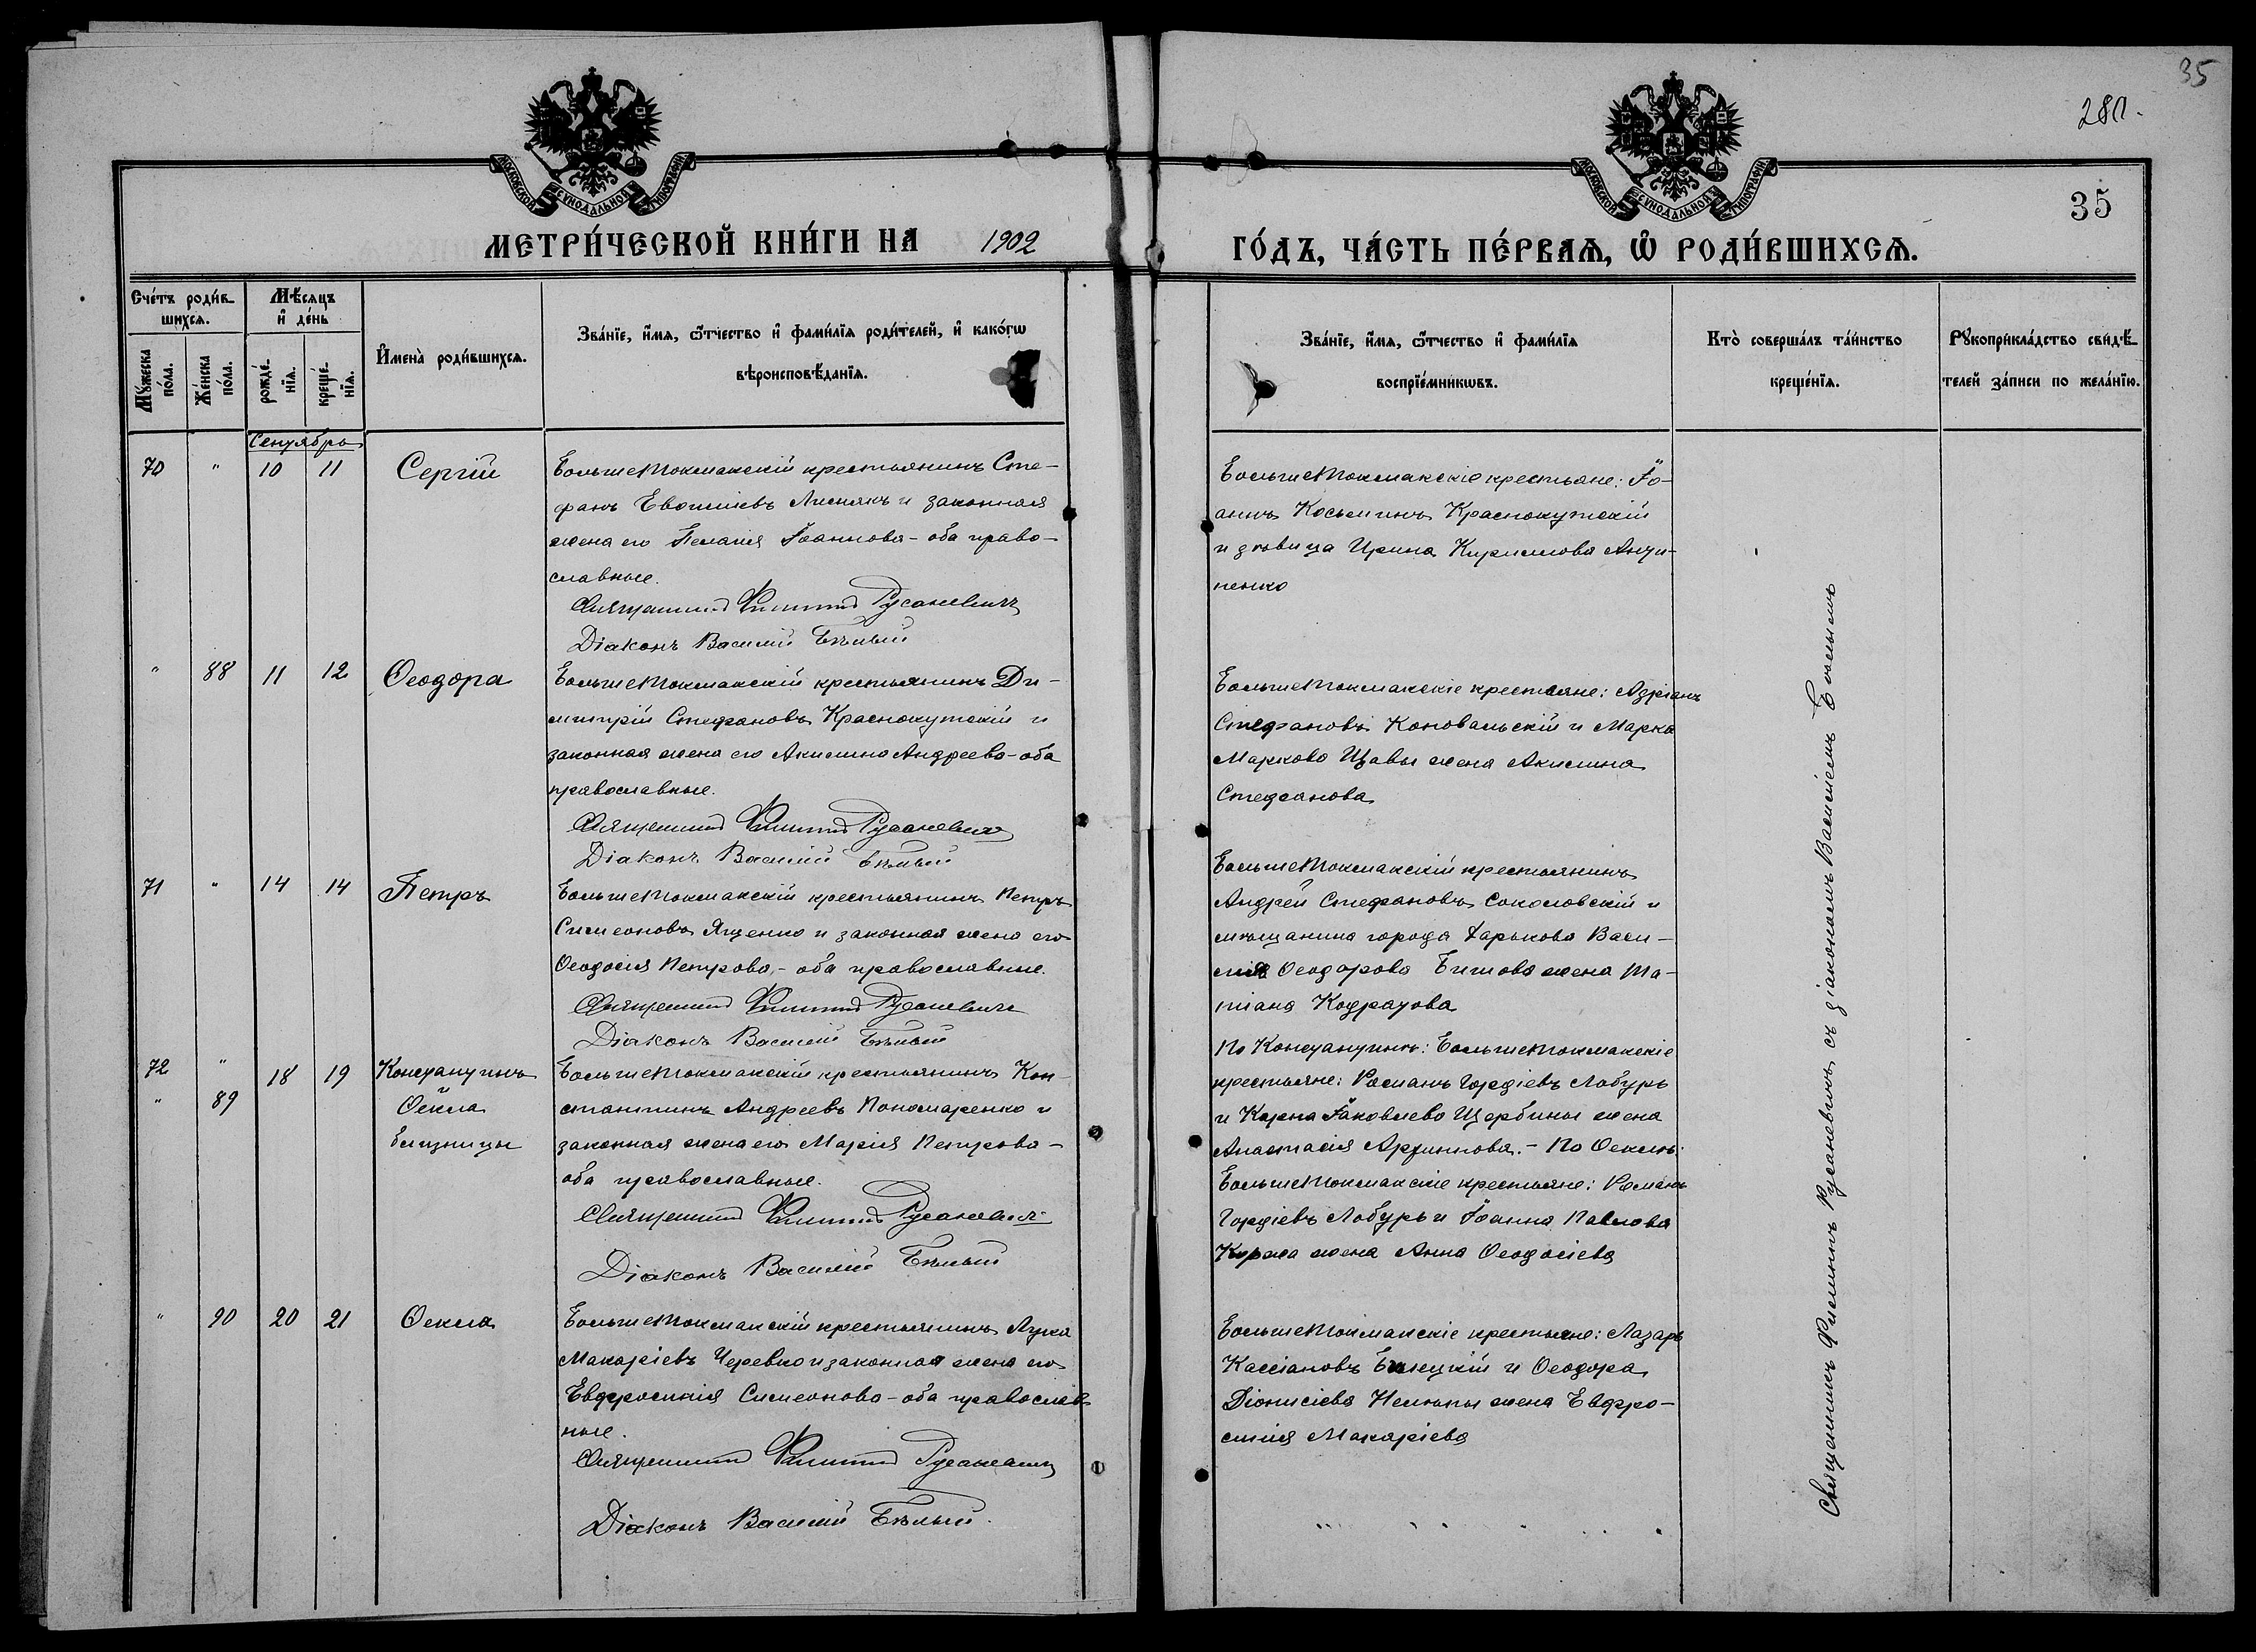 35
280.
35
МОСКОВСКОЙ СѴНОДАЛЬНОЙ ТИПОГРАФІИ
МОСКОВСКОЙ СѴНОДАЛЬНОЙ ТИПОГРАФІИ
МЕТРИ́ЧЕСКОЙ КНИ́ГИ НА 1902
ГО́ДЪ, ЧА́СТЬ ПЕ́РВАѦ, Ѡ҆ РОДИ́ВШИХСѦ.
Сче́тъ роди́в-
шихсѧ.
Мꙋ́жеска
по́ла.
Же́нска
по́ла.
Мѣ́сѧцъ
и҆ де́нь
рожде́-
нїѧ.
креще́-
нїѧ.
И҆мена̀ роди́вшихсѧ.
Зва́нїе, и҆́мѧ, ѻ҆́тчество и҆ фами́лїѧ роди́телей, и҆ како́гѡ
вѣроисповѣ́данїѧ.
Зва́нїе, и҆́мѧ, ѻ҆́тчество и҆ фами́лїѧ
воспрїе́мникѡвъ.
Кто̀ соверша́лъ та́инство
креще́нїѧ.
Рꙋкоприкла́дство свидѣ́-
телей за́писи по жела́нїю.
Сентябрь
70 " 10 11 Сергій
Больше Токмакскій крестьянинъ Сте-
фанъ Евѳиміевъ Лиснякъ и законная
жена его Пелагія Іоаннова - оба право-
славные.
Священникъ Филиппъ Русаневичъ
Діаконъ Василій Бѣлый
Больше Токмакскіе крестьяне: Іо-
аннъ Косьминъ Краснокутскій
и дѣвица Ирина Кириллова Анти-
пенко
" 88 11 12 Ѳеодора
Больше Токмакскій крестьянинъ Ди-
митрій Стефановъ Краснокутскій и
законная жена его Акилина Андреева - оба
православные.
Священникъ Филиппъ Русаневичъ
Діаконъ Василій Бѣлый
Больше Токмакскіе крестьяне: Адріанъ
Стефановъ Коновальскій и Марка
Маркова Щавы жена Акилина
Стефанова
71 " 14 14 Петръ
Больше Токмакскій крестьянинъ Петръ
Симеоновъ Ященко и законная жена его
Ѳеодосія Петрова, - оба православные.
Священникъ Филиппъ Русаневичъ
Діаконъ Василій Бѣлый
Больше Токмакскій крестьянинъ
Андрей Стефановъ Соколовскій и
мѣщанина города Харькова Васи-
лія Ѳеодорова жена Та-
тіана Кодратова
72 " 18 19 Константинъ
" 89 и Ѳекла
близнецы
Больше Токмакскій крестьянинъ Кон-
стантинъ Андреевъ Пономаренко и
законная жена его Марія Петрова -
оба православные.
Священникъ Филиппъ Русаневичъ
Діаконъ Василій Бѣлый
По Константинѣ: Больше Токмакскіе
крестьяне: Романъ Гордіевъ Лобурь
и Карпа Іаковлева Щербины жена
Анастасія. - По Ѳеклѣ:
Больше Токмакскіе крестьяне: Романъ
Гордіевъ Лобурь и Іоанна Павлова
жена Анна Ѳеодосіева
" 90 20 21 Ѳекла
Больше Токмакскій крестьянинъ Лука
Макаріевъ Черевко и законная жена его
Евфросинія Симеонова - оба православ-
ные.
Священникъ Филиппъ Русаневичъ
Діаконъ Василій Бѣлый.
Больше Токмакскіе крестьяне: Лазарь
Кассіановъ Билецкій и Ѳеодора
Діонисіева жена Евфро-
синія Макаріева
Священникъ Филиппъ Русаневичъ съ діакономъ Василіемъ Бѣлымъ